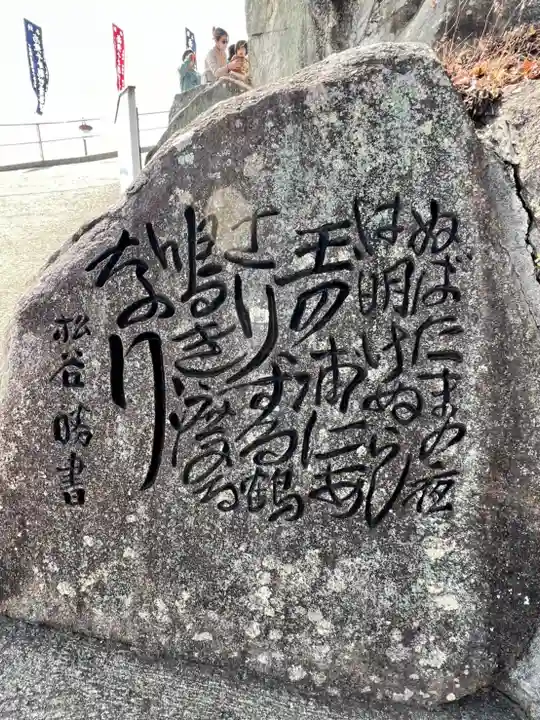 ぬばたまの夜
は明けぬらし
玉の浦にあ
さりする鶴
鳴き渡る
なり
松谷 勝書